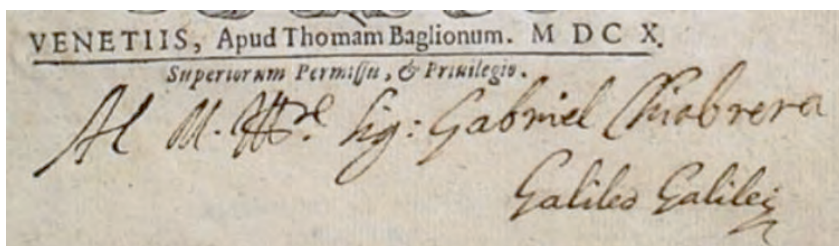 VENETIIS, Apud Thomam Baglionum. M D C X.
Superiorum Permissu, & Priuilegio.
Al M. Ill.re Sig: Gabriel Chiabrera
Galileo Galilei